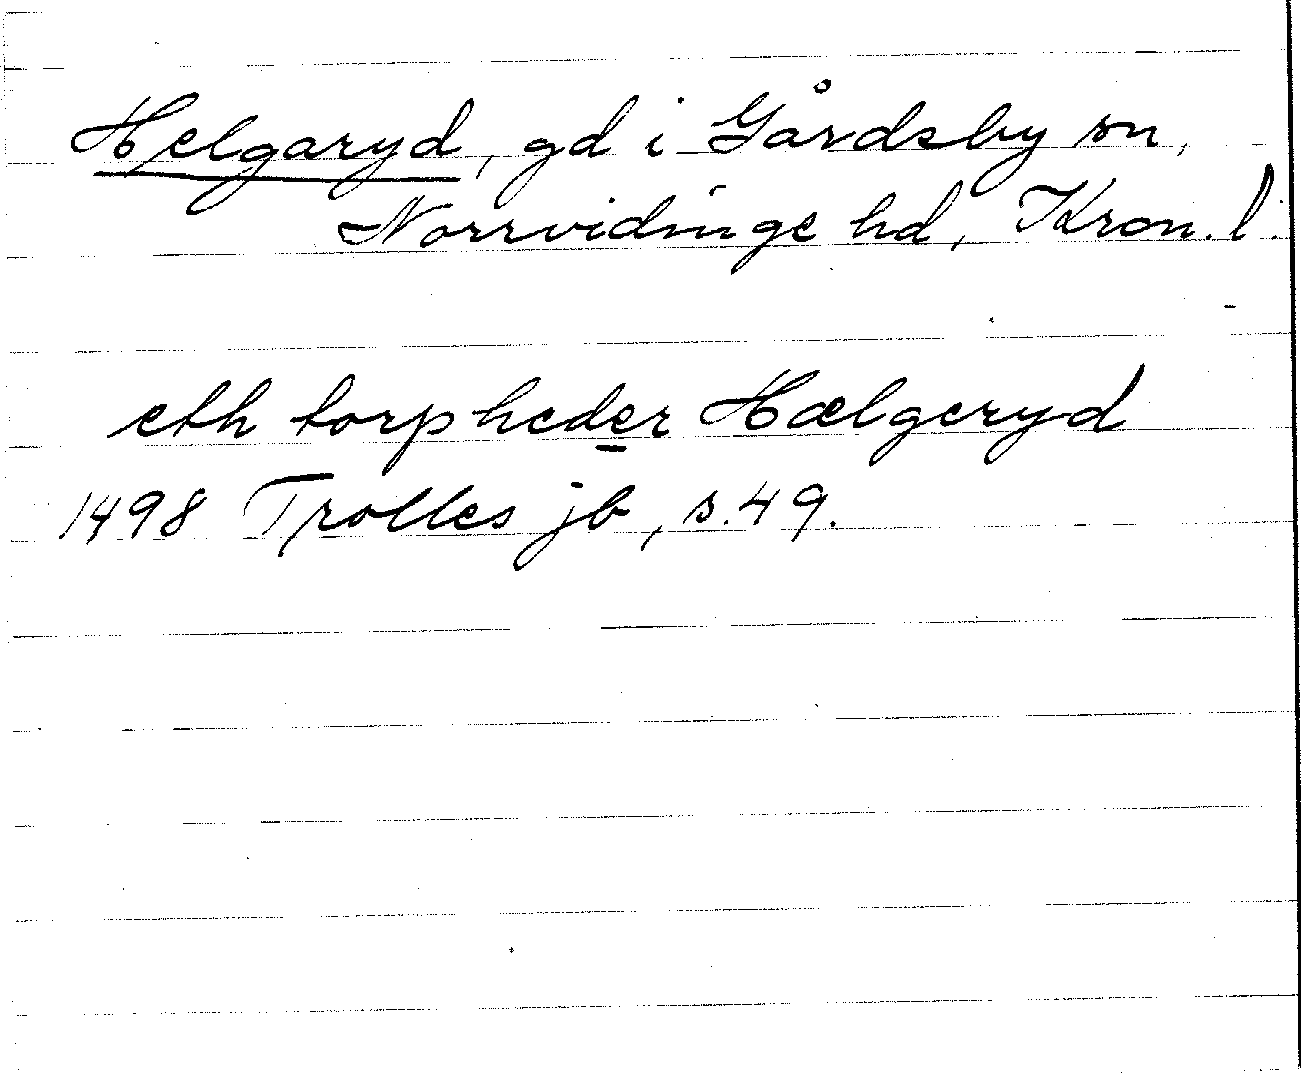 Helgaryd, gd i Gårdsby sn,
Norrvidinge hd, Kron. l.
eth torp heder Hælgeryd
1498 Trolles jb, s. 49.